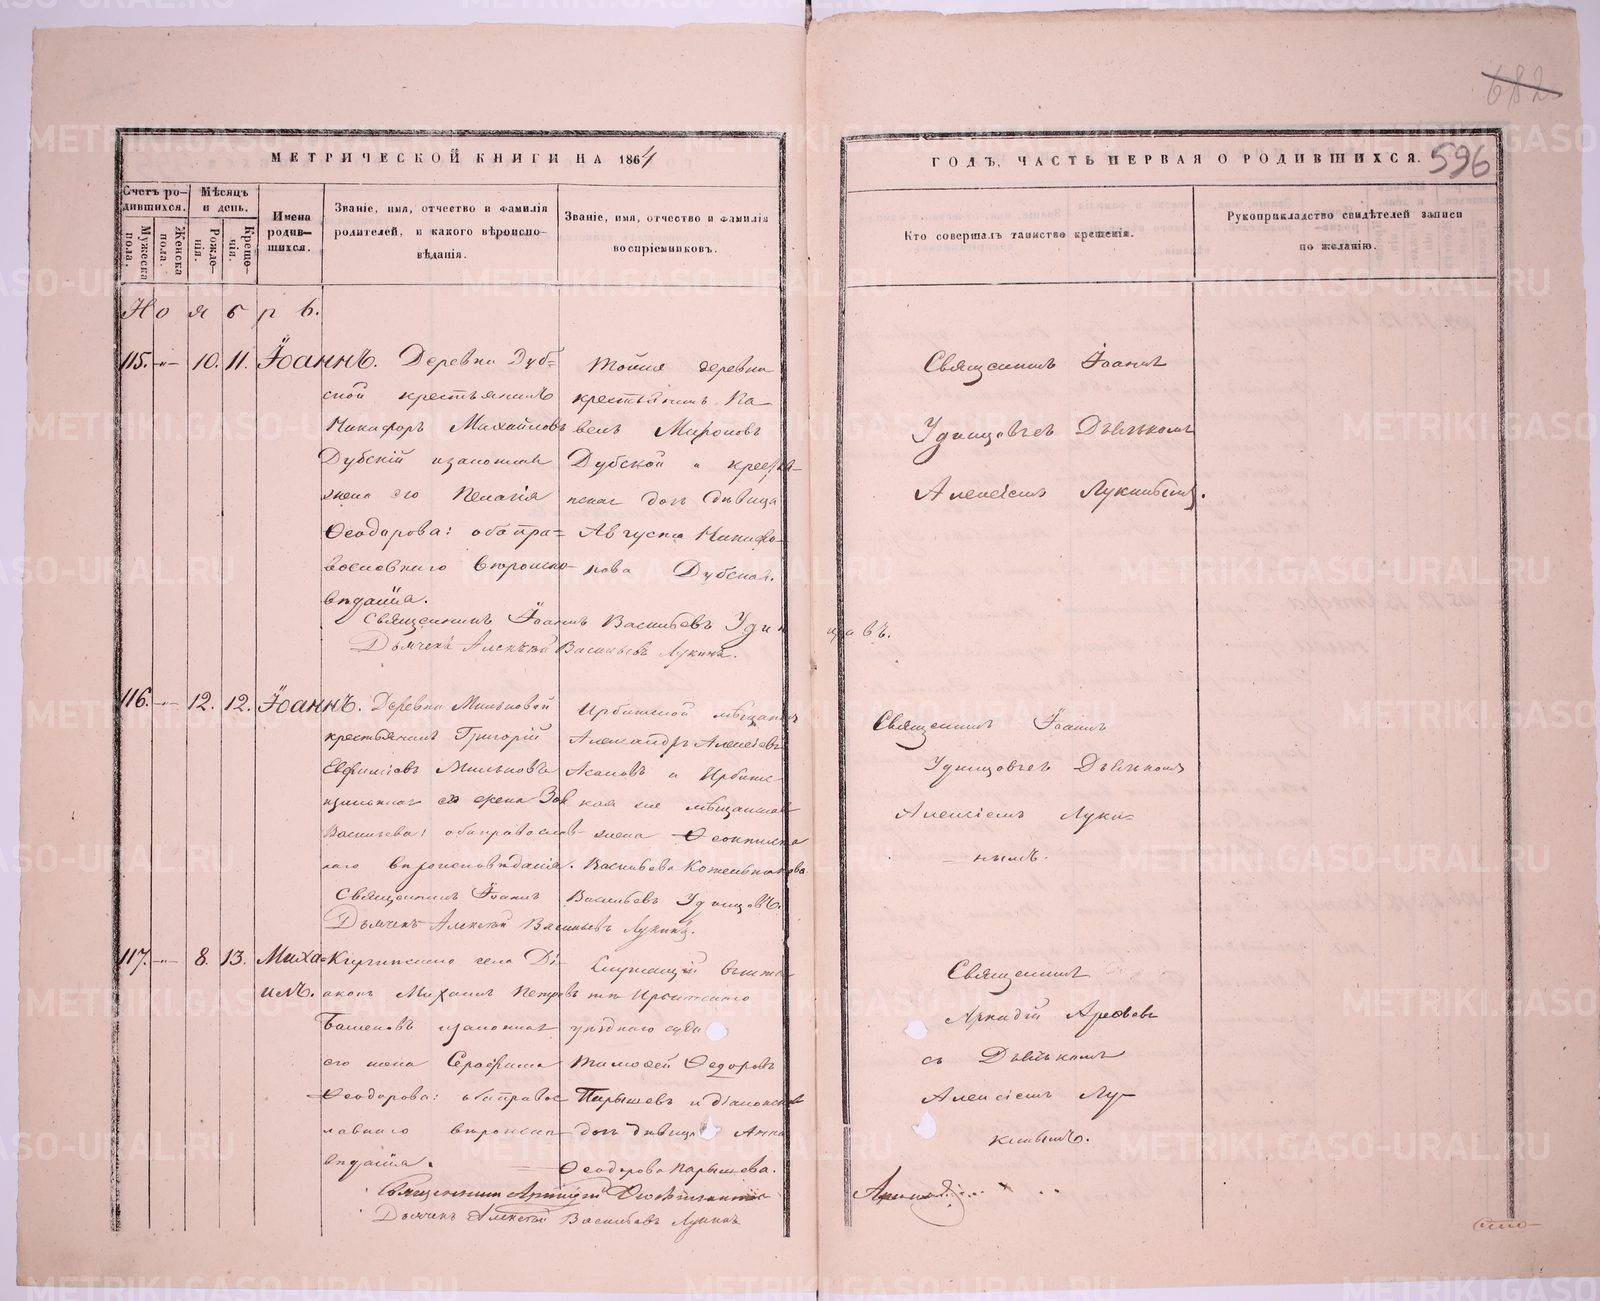 682
596
МЕТРИЧЕСКОЙ КНИГИ НА 1864
ГОДЪ, ЧАСТЬ ПЕРВАЯ О РОДИВШИХСЯ.
Счетъ ро-
дившихся.
Мужеска пола.
Женска пола.
Мѣсяцъ
и день.
Рожде-
нія.
Креще-
нія.
Имена
родив-
шихся.
Званіе, имя, отчество и фамилія
родителей, и какого вѣроиспо-
вѣданія.
Званіе, имя, отчество и фамилія
воспріемниковъ.
Кто совершалъ таинство крещенія.
Рукоприкладство свидѣтелей записи
по желанію.
Ноябрь.
115. -"- 10. 11. Іоаннъ.
Деревни Дуб=
ской крестьянинъ
Никифоръ Михайловъ
Дубскій и законная
жена его Пелагія
Ѳеодорова: оба пра=
вославнаго вѣроиспо-
вѣданія.
Тойже деревни
крестьянинъ Па
велъ Мироновъ
Дубской и кресть-
янская дочь дѣвица
Августа Никифо-
рова Дубская.
Священникъ Іоаннъ
Удинцовъ съ Дьячкомъ
Алексіемъ Лукинымъ.
Священникъ Іоаннъ Васильевъ Удинцовъ.
Дьячекъ Алексѣй Васильевъ Лукинъ.
116. -"- 12. 12. Іоаннъ.
Деревни Мильковой
крестьянинъ Григорій
Евфиміевъ Мильковъ
и законная его жена Зоя
Васильева: оба православ-
наго вѣроисповѣданія.
Ирбитской мѣщанинъ
Александръ Алексѣевъ
и Ирбитс
кая же мѣщанская
жена Ѳеоктиста
Васильева Кожевникова
Священникъ Іоаннъ
Удинцовъ съ Дьячкомъ
Алексіемъ Луки=
=нымъ.
Священникъ Іоаннъ Васильевъ Удинцовъ.
Дьячекъ Алексѣй Васильевъ Лукинъ.
117. -"- 8. 13. Миха=
илъ.
Киргинскаго села Ді-
аконъ Михаилъ Петровъ
и законная
его жена Серафима
Ѳеодорова: оба правос-
лавнаго вѣроиспо-
вѣданія.
Служащій въ
Ирбитскаго
уѣзднаго суда
Тимоѳей Ѳедоровъ
Парышевъ и діаконская
дочь дѣвица Анна
Ѳеодорова Парышева.
Священникъ
Аркадій
съ Дьячкомъ
Алексіемъ Лу-
кинымъ.
Священникъ Аркадій
Дьячекъ Алексѣй Васильевъ Лукинъ
METRIKI.GASO-URAL.RU